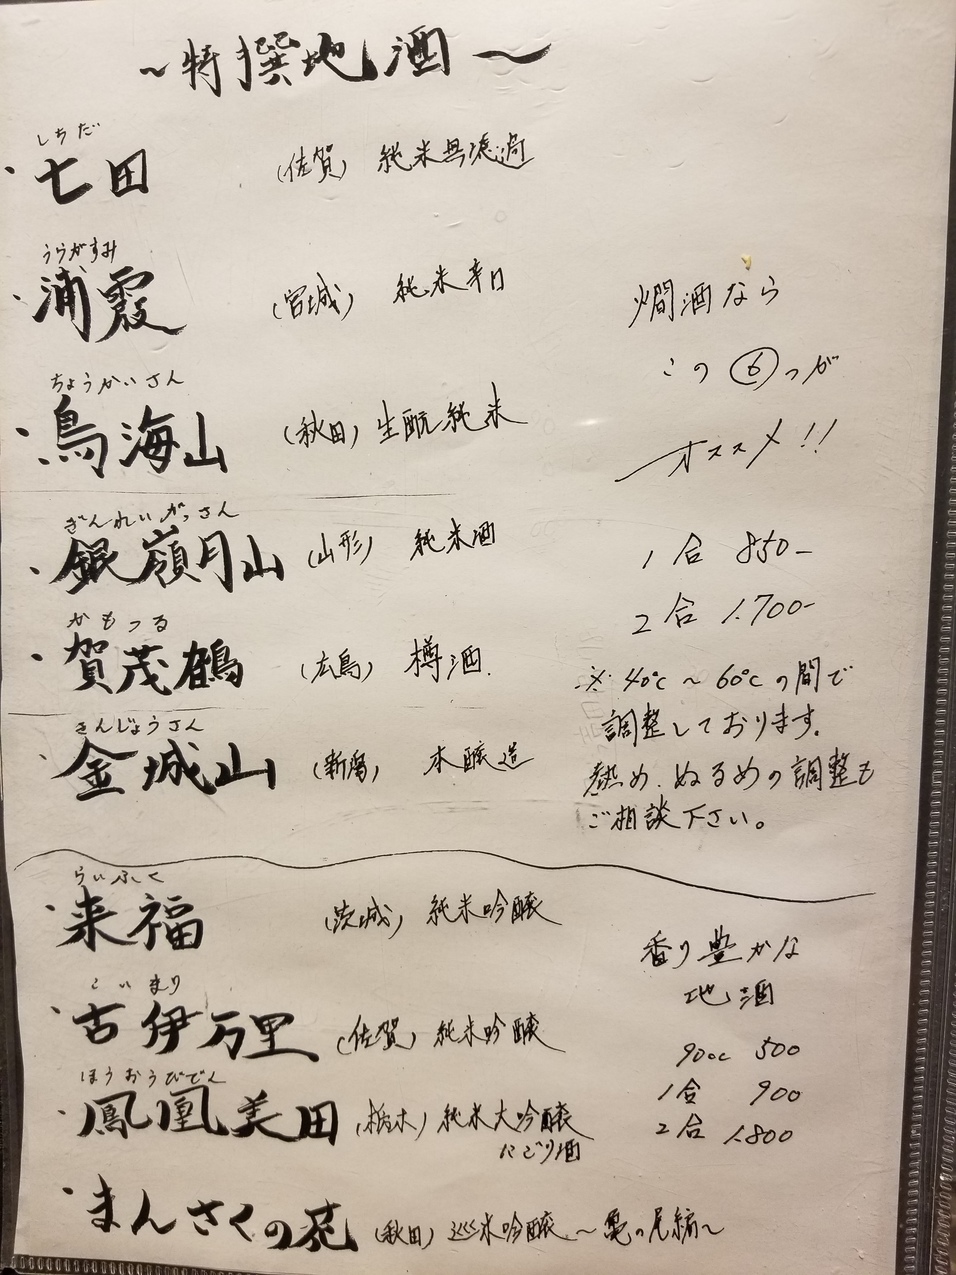 ～特撰地酒～
しちだ
・七田 (佐賀) 純米無濾過
うらがすみ
・浦霞 (宮城) 純米辛口
ちょうかいさん
・鳥海山 (秋田) 生酛純米
ぎんれいがっさん
・銀嶺月山 (山形) 純米酒
かもつる
・賀茂鶴 (広島) 樽酒
きんじょうさん
・金城山 (新潟) 本醸造
燗酒なら
この⑥つが
オススメ!!
1合 850-
2合 1.700-
※40℃～60℃の間で
調整しております。
熱め、ぬるめの調整も
ご相談下さい。
らいふく
・来福 (茨城) 純米吟醸
こいまり
・古伊万里 (佐賀) 純米吟醸
ほうおうびでん
・鳳凰美田 (栃木) 純米大吟醸
にごり酒
・まんさくの花 (秋田) 巡米吟醸 ～亀の尾編～
香り豊かな
地酒
90cc 500
1合 900
2合 1.800